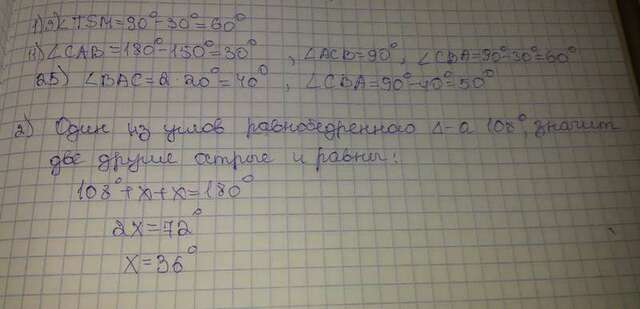 1) 9) ∠TSM=90°-30°=60°
11) ∠CAB=180°-150°=30°, ∠ACB=90°, ∠CBA=90°-30°=60°
25) ∠BAC=2·20°=40°, ∠CBA=90°-40°=50°
2) Один из углов равнобедренного Δ-а 108°, значит
две другие острые и равны:
108°+x+x=180°
2x=72°
x=36°